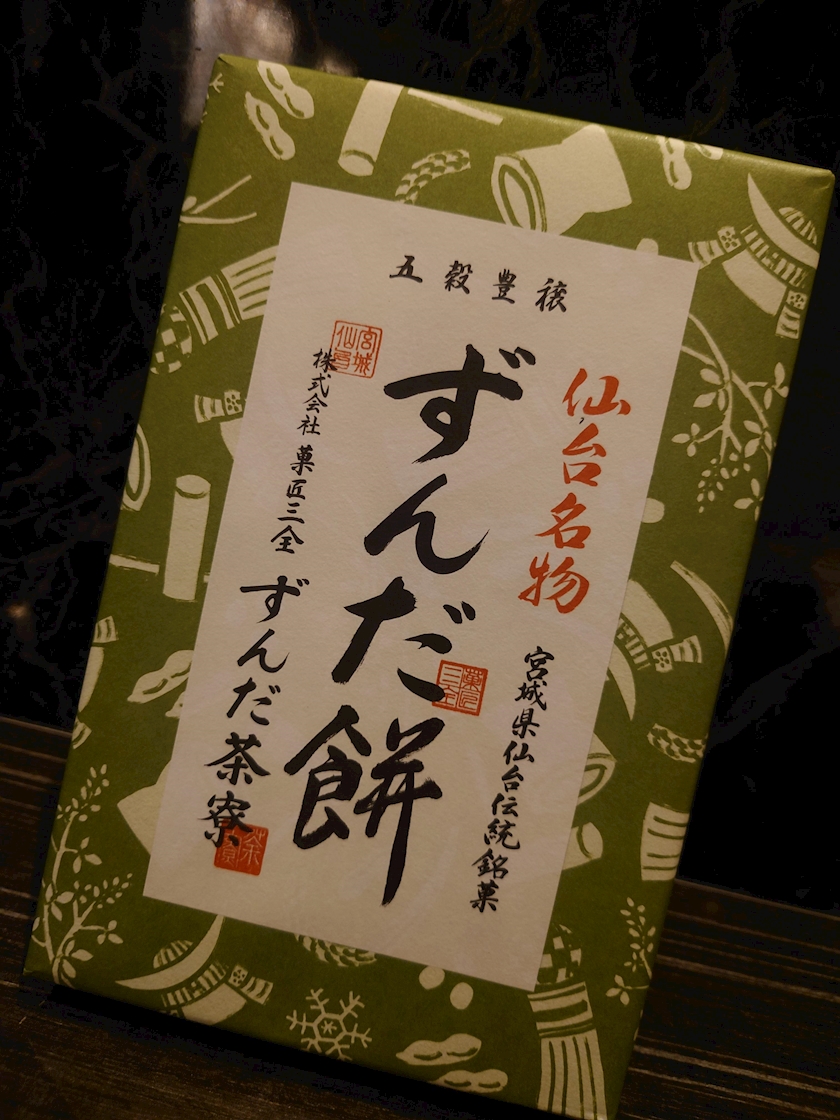 五穀豊穣
仙台名物
宮城県仙台伝統銘菓
ずんだ餅
菓匠三全
宮城仙臺
株式会社 菓匠三全
ずんだ茶寮
茶寮